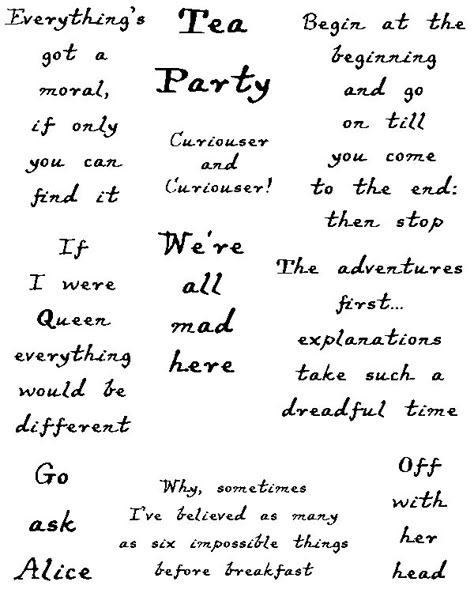 Everything's
got a
moral,
if only
you can
find it
Tea
Party
Curiouser
and
Curiouser!
Begin at the
beginning
and go
on till
you come
to the end:
then stop
If
I were
Queen
everything
would be
different
We're
all
mad
here
The adventures
first...
explanations
take such a
dreadful time
Go
ask
Alice
Why, sometimes
I've believed as many
as six impossible things
before breakfast
Off
with
her
head